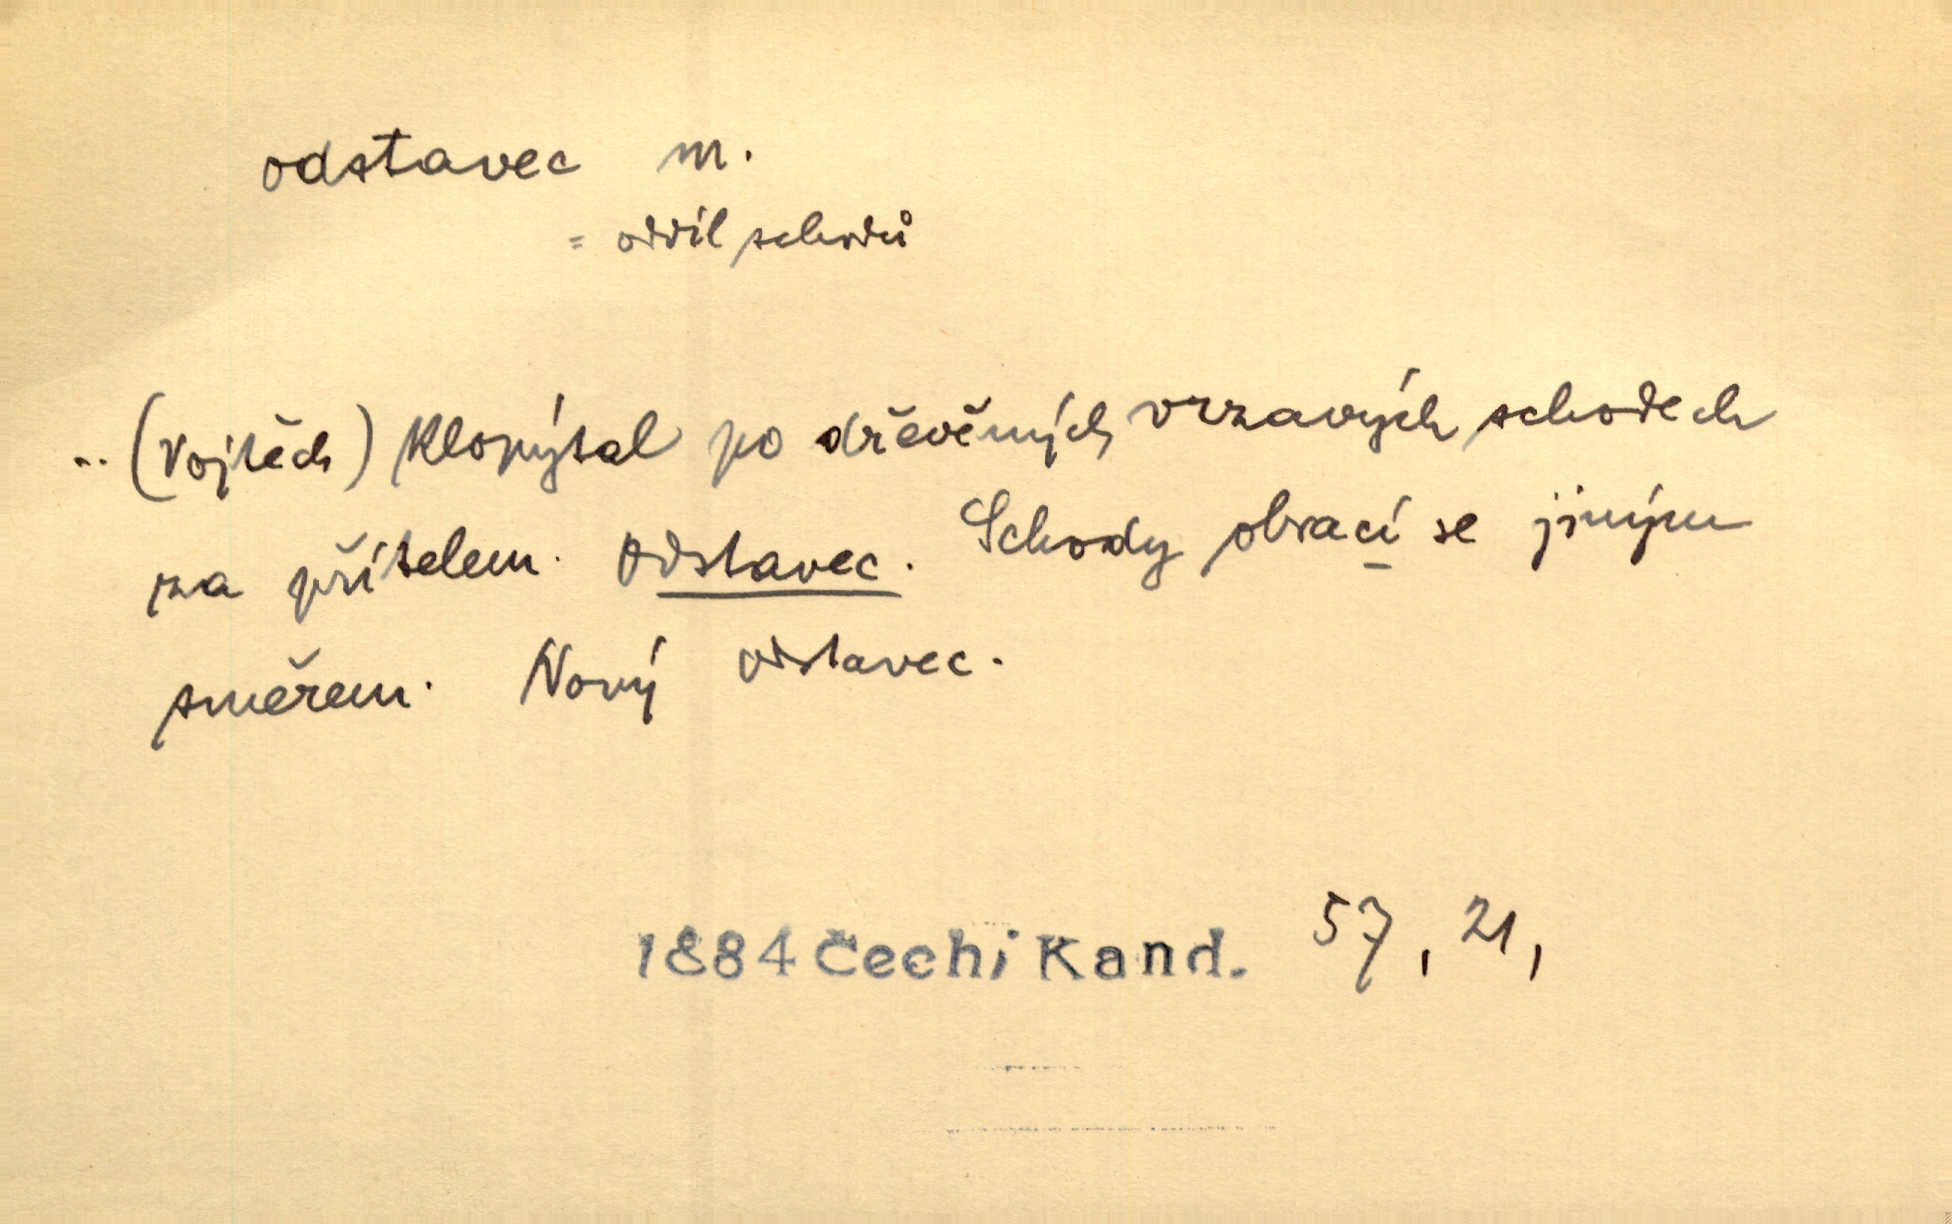 odstavec m.
= oddíl schodů
.. (Vojtěch) klopýtal po dřevěných vrzavých schodech
za přítelem. Odstavec. Schody obrací se jiným
směrem. Nový odstavec.
1884 Čech i Kand. 57, 21,